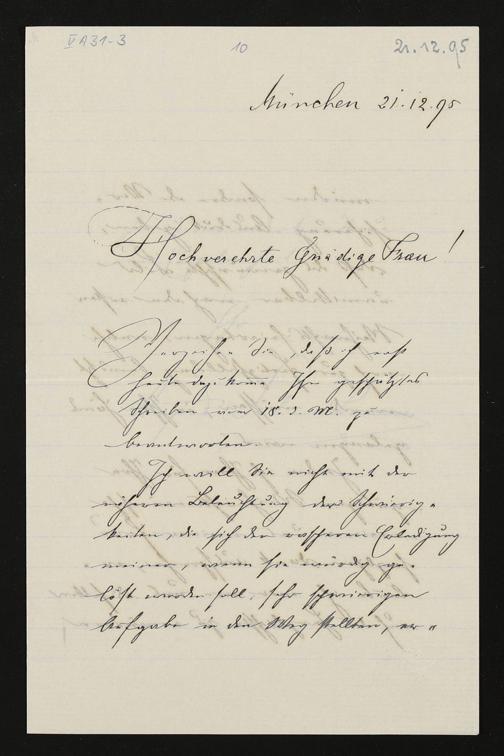 V A 31-3
10
21.12.95
München 21.12.95
Hochverehrte Gnädige Frau!
Verzeihen Sie, daß ich erst
heute dazu komme Ihr geschätztes
Schreiben vom 18. d. M. zu
beantworten.
Ich will Sie nicht mit der
näheren Beleuchtung der Schwierig=
keiten, die sich der rascheren Erledigung
meiner, wenn sie würdig ge=
löst werden soll, sehr schwierigen
Aufgabe in den Weg stellten, er=